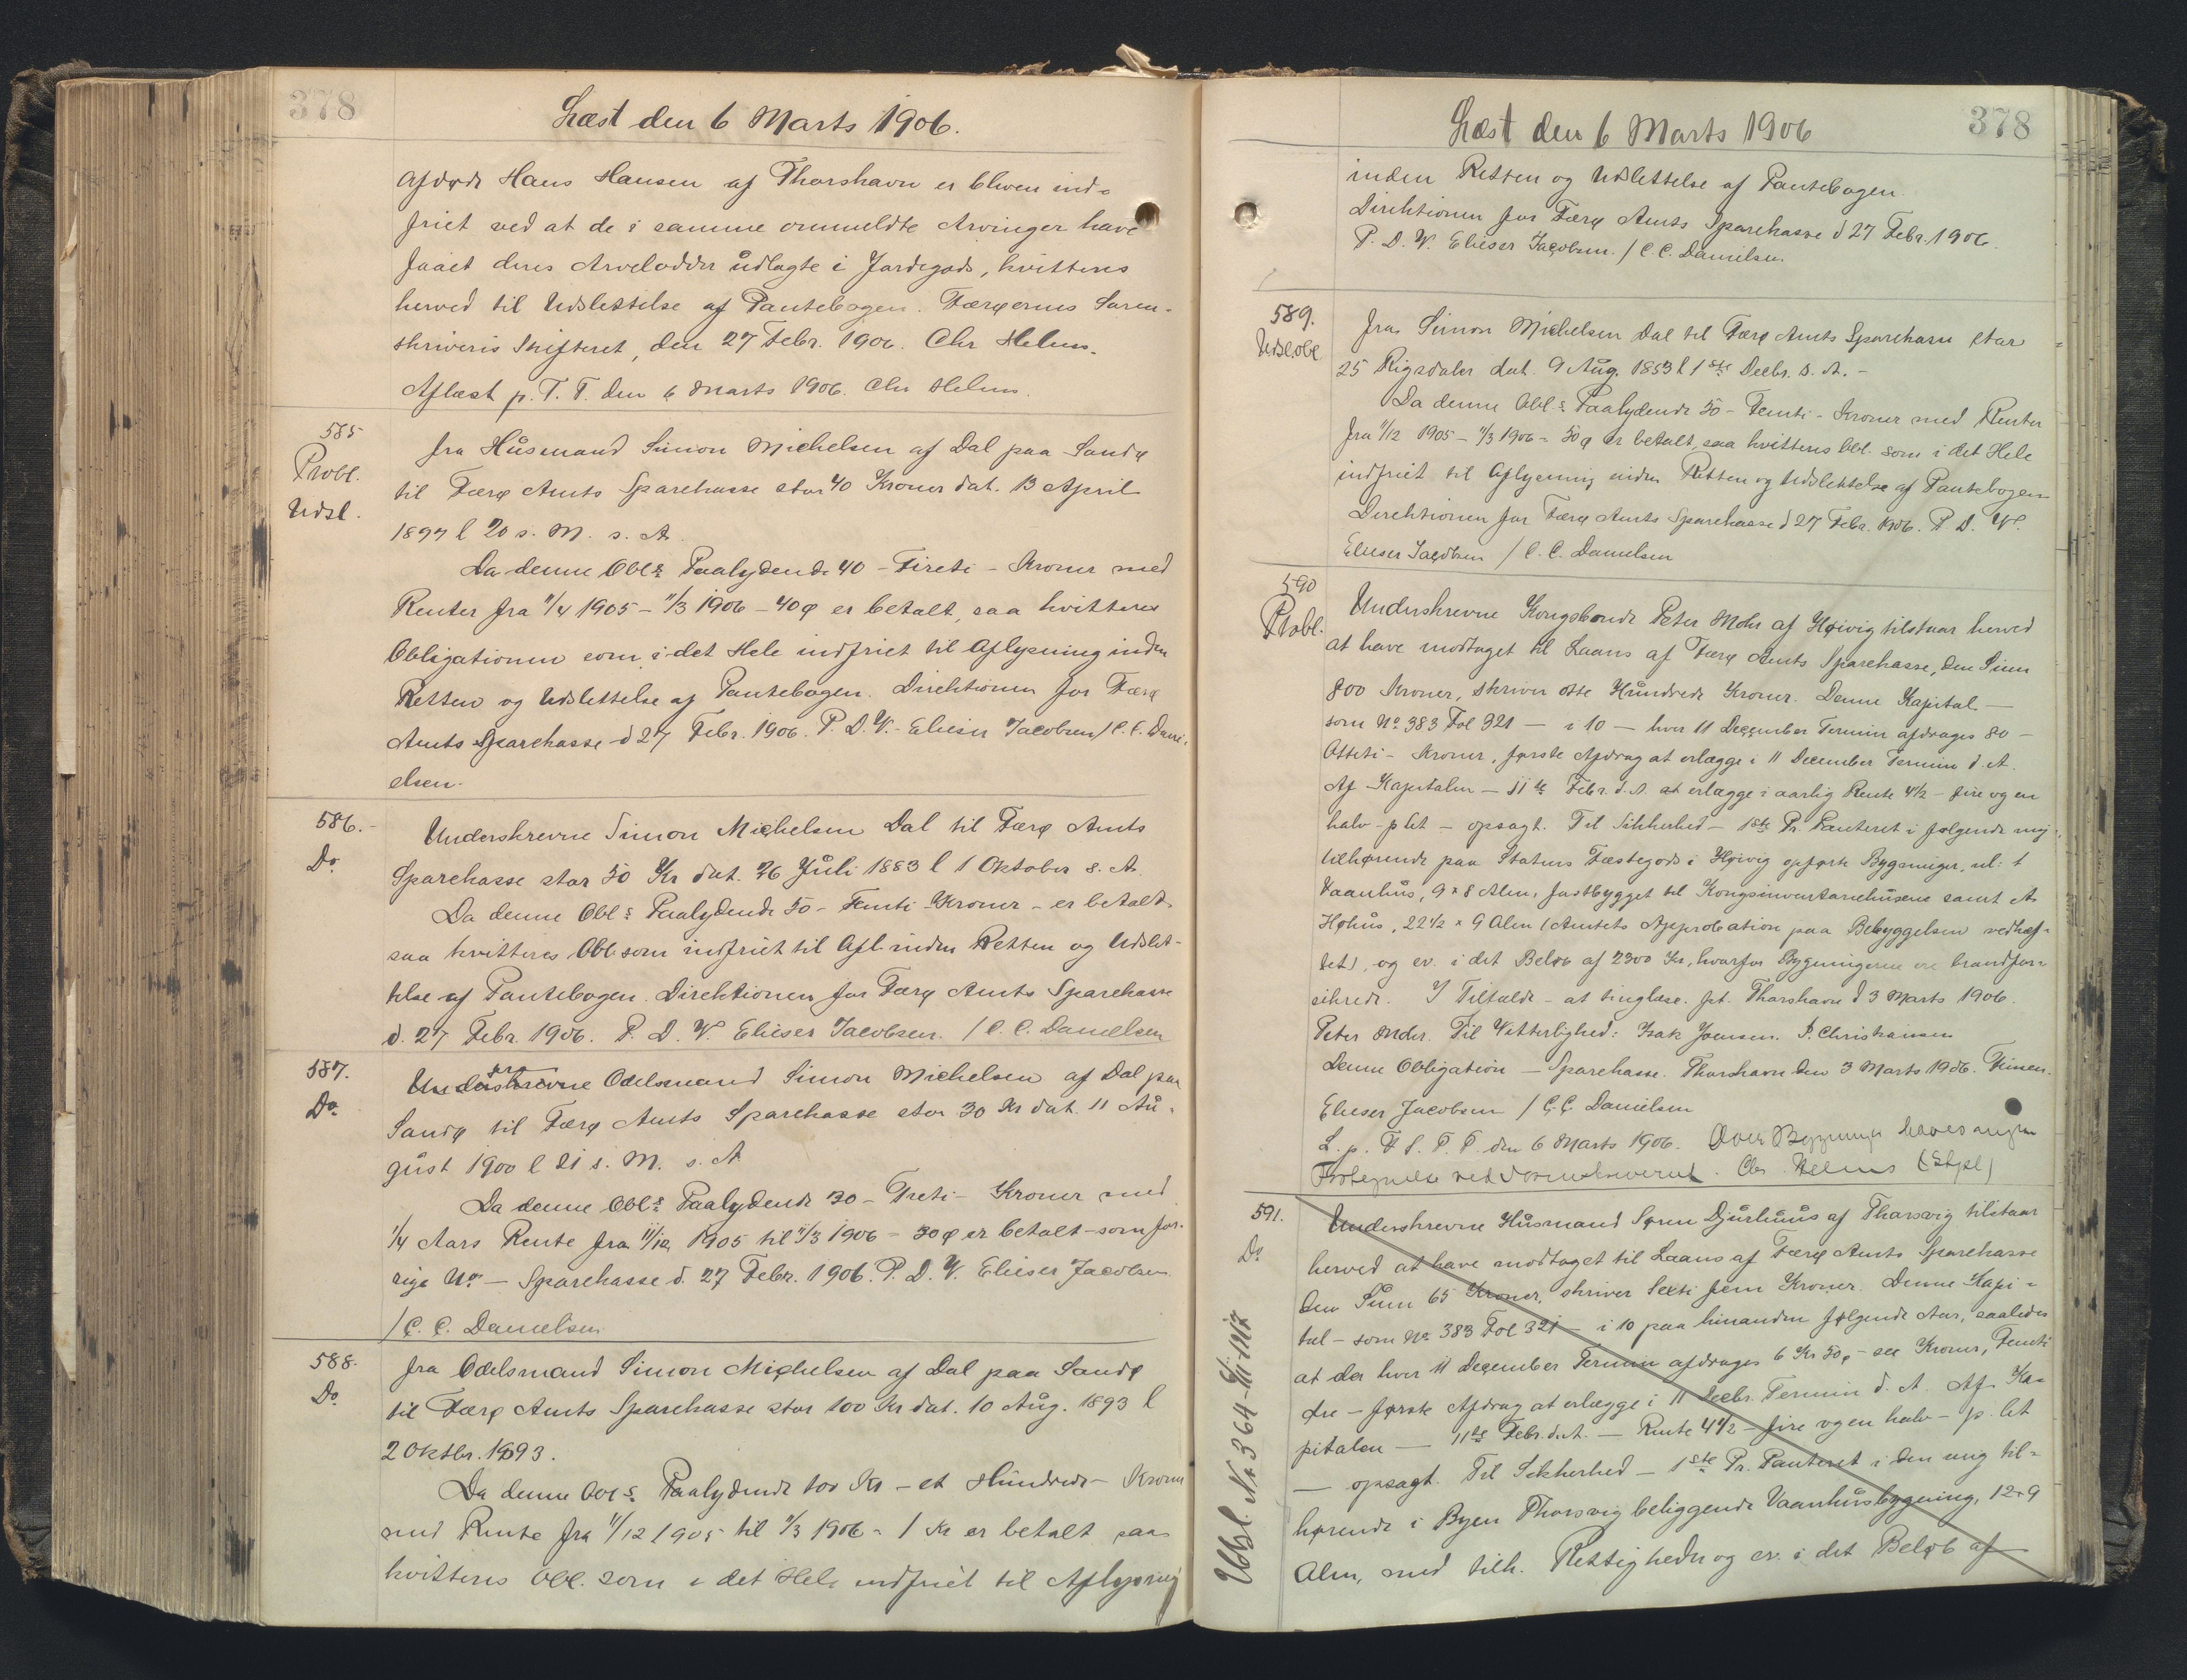 378
Læst den 6 Marts 1906.
Afdøde Hans Hansen af Thorshavn er bleven ind-
friet ved at de i samme ommeldte Arvinger have
faaet deres Arvelodder udlagte i Jordegods, kvitteres
herved til Udslettelse af Pantebogen. Færøernes Soren-
skriveris Skifteret, den 27 Febr. 1906. Chr Helms.
Aflæst p. T. T. den 6 Marts 1906. Chr Helms.
585
Probl.
Udsl.
fra Husmand Simon Michelsen af Dal paa Sandø
til Færø Amts Sparekasse stor 40 Kroner dat. 13 April
1897 l 20 s. M. s. A.
Da denne Obls Paalydende 40 - Fireti - Kroner med
Renter fra 11/4 1905 - 11/3 1906 - 40 ø er betalt, saa kvitteres
Obligationen som i det Hele indfriet til Aflysning inden
Retten og Udslettelse af Pantebogen. Direktionen for Færø
Amts Sparekasse d 27 Febr. 1906. P. D. V. Elieser Jacobsen / C. C. Dani-
elsen.
586.
Do
Underskrevne Simon Michelsen Dal til Færø Amts
Sparekasse stor 50 Kr dat. 26 Juli 1883 l 1 Oktober s. A.
Da denne Obls Paalydende 50 - Femti Kroner - er betalt
saa kvitteres Obl. som indfriet til Afl. inden Retten og Udslet-
telse af Pantebogen. Direktionen for Færø Amts Sparekasse
d. 27 Febr. 1906. P. D. V. Elieser Jacobsen. / C. C. Danielsen
587.
Do
fra
Underskrevne Odelsmand Simon Michelsen af Dal paa
Sandø til Færø Amts Sparekasse stor 30 Kr dat. 11 Au-
gust 1900 l 21 s. M. s. A.
Da denne Obls Paalydende 30 - Treti - Kroner med
1/4 Aars Rente fra 11/12 1905 til 11/3 1906 - 30 ø er betalt - som for-
rige No - Sparekasse d. 27 Febr. 1906. P. D. V. Elieser Jacobsen
/ C. C. Danielsen
588.
Do
fra Odelsmand Simon Michelsen af Dal paa Sandø
til Færø Amts Sparekasse stor 100 Kr dat. 10 Aug. 1893 l
2 Oktbr. 1893.
Da denne Obls Paalydende 100 Kr - et Hundrede - Kroner
med Rente fra 11/12 1905 til 11/3 1906 - 1 Kr er betalt saa
kvitteres Obl. som i det Hele indfriet til Aflysning
Læst den 6 Marts 1906
378
inden Retten og Udslettelse af Pantebogen.
Direktionen for Færø Amts Sparekasse d 27 Febr. 1906.
P. D. V. Elieser Jacobsen. / C. C. Danielsen
589.
Udsl. obl.
fra Simon Michelsen Dal til Færø Amts Sparekasse stor
25 Rigsdaler dat. 9 Aug. 1853 l 1ste Decbr. s. A. -
Da denne Obl.s Paalydende 50 - Femti - Kroner med Renter
fra 11/12 1905 - 11/3 1906 - 50 ø er betalt, saa kvitteres Obl. som i det Hele
indfriet til Aflysning inden Retten og Udslettelse af Pantebogen
Direktionen for Færø Amts Sparekasse d 27 Febr. 1906. P. D. V.
Elieser Jacobsen / C. C. Danielsen
590
Probl.
Underskrevne Kongsbonde Peter Mohr af Høivig tilstaar herved
at have modtaget til Laans af Færø Amts Sparekasse, den Sum
800 Kroner, skriver otte Hundrede Kroner. Denne Kapital -
som No 383 Fol 321 - i 10 - hver 11 December Termin afdrages 80 -
Otteti - Kroner, første Afdrag at erlægge i 11 December Termin d. A.
Af Kapitalen - 11te Febr. d. A. at erlægge i aarlig Rente 4 1/2 - fire og en
halv - p Ct - opsagt. Til Sikkerhed - 1ste Pr. Panteret i følgende mig
tilhørende paa Statens Fæstegods i Høivig opførte Bygninger, nl: 1
Vaanhus, 9 x 8 Alen, fastbygget til Kongsinventariehusene samt et
Høhus, 22 1/2 x 9 Alen (Amtets Approbation paa Bebyggelsen vedhæf-
tet), og ev. i det Beløb af 2300 Kr, hvorfor Bygningerne ere brandfor-
sikrede. I Tilfælde - at tinglæse. pt. Thorshavn d 3 Marts 1906.
Peter Mohr. Til Vitterlighed: Isak Joensen. P. Christiansen
Denne Obligation - Sparekasse. Thorshavn den 3 Marts 1906.
Elieser Jacobsen / C. C. Danielsen
L. p. F. S. T. T. den 6 Marts 1906. Chr. Helms
591.
Do
Underskrevne Husmand Søren Djurhuus af Thorsvig tilstaar
herved at have modtaget til Laans af Færø Amts Sparekasse
den Sum 65 Kroner, skriver Sexti fem Kroner. Denne Kapi-
tal - som No 383 Fol 321 - i 10 paa hinanden følgende Aar, saaledes
at der hver 11 December Termin afdrages 6 Kr 50 ø - sex Kroner, Femti
Øre - første Afdrag at erlægge i 11 Decbr. Termin d. A. Af Ka-
pitalen - 11te Febr. d. A. - Rente 4 1/2 - fire og en halv - p. Ct
- opsagt. Til Sikkerhed - 1ste Pr. Panteret i den mig til-
hørende i Byen Thorsvig beliggende Vaanhusbygning, 12 x 9
Alen, med tilh. Rettigheder og ev. i det Beløb af
Udsl. No 364